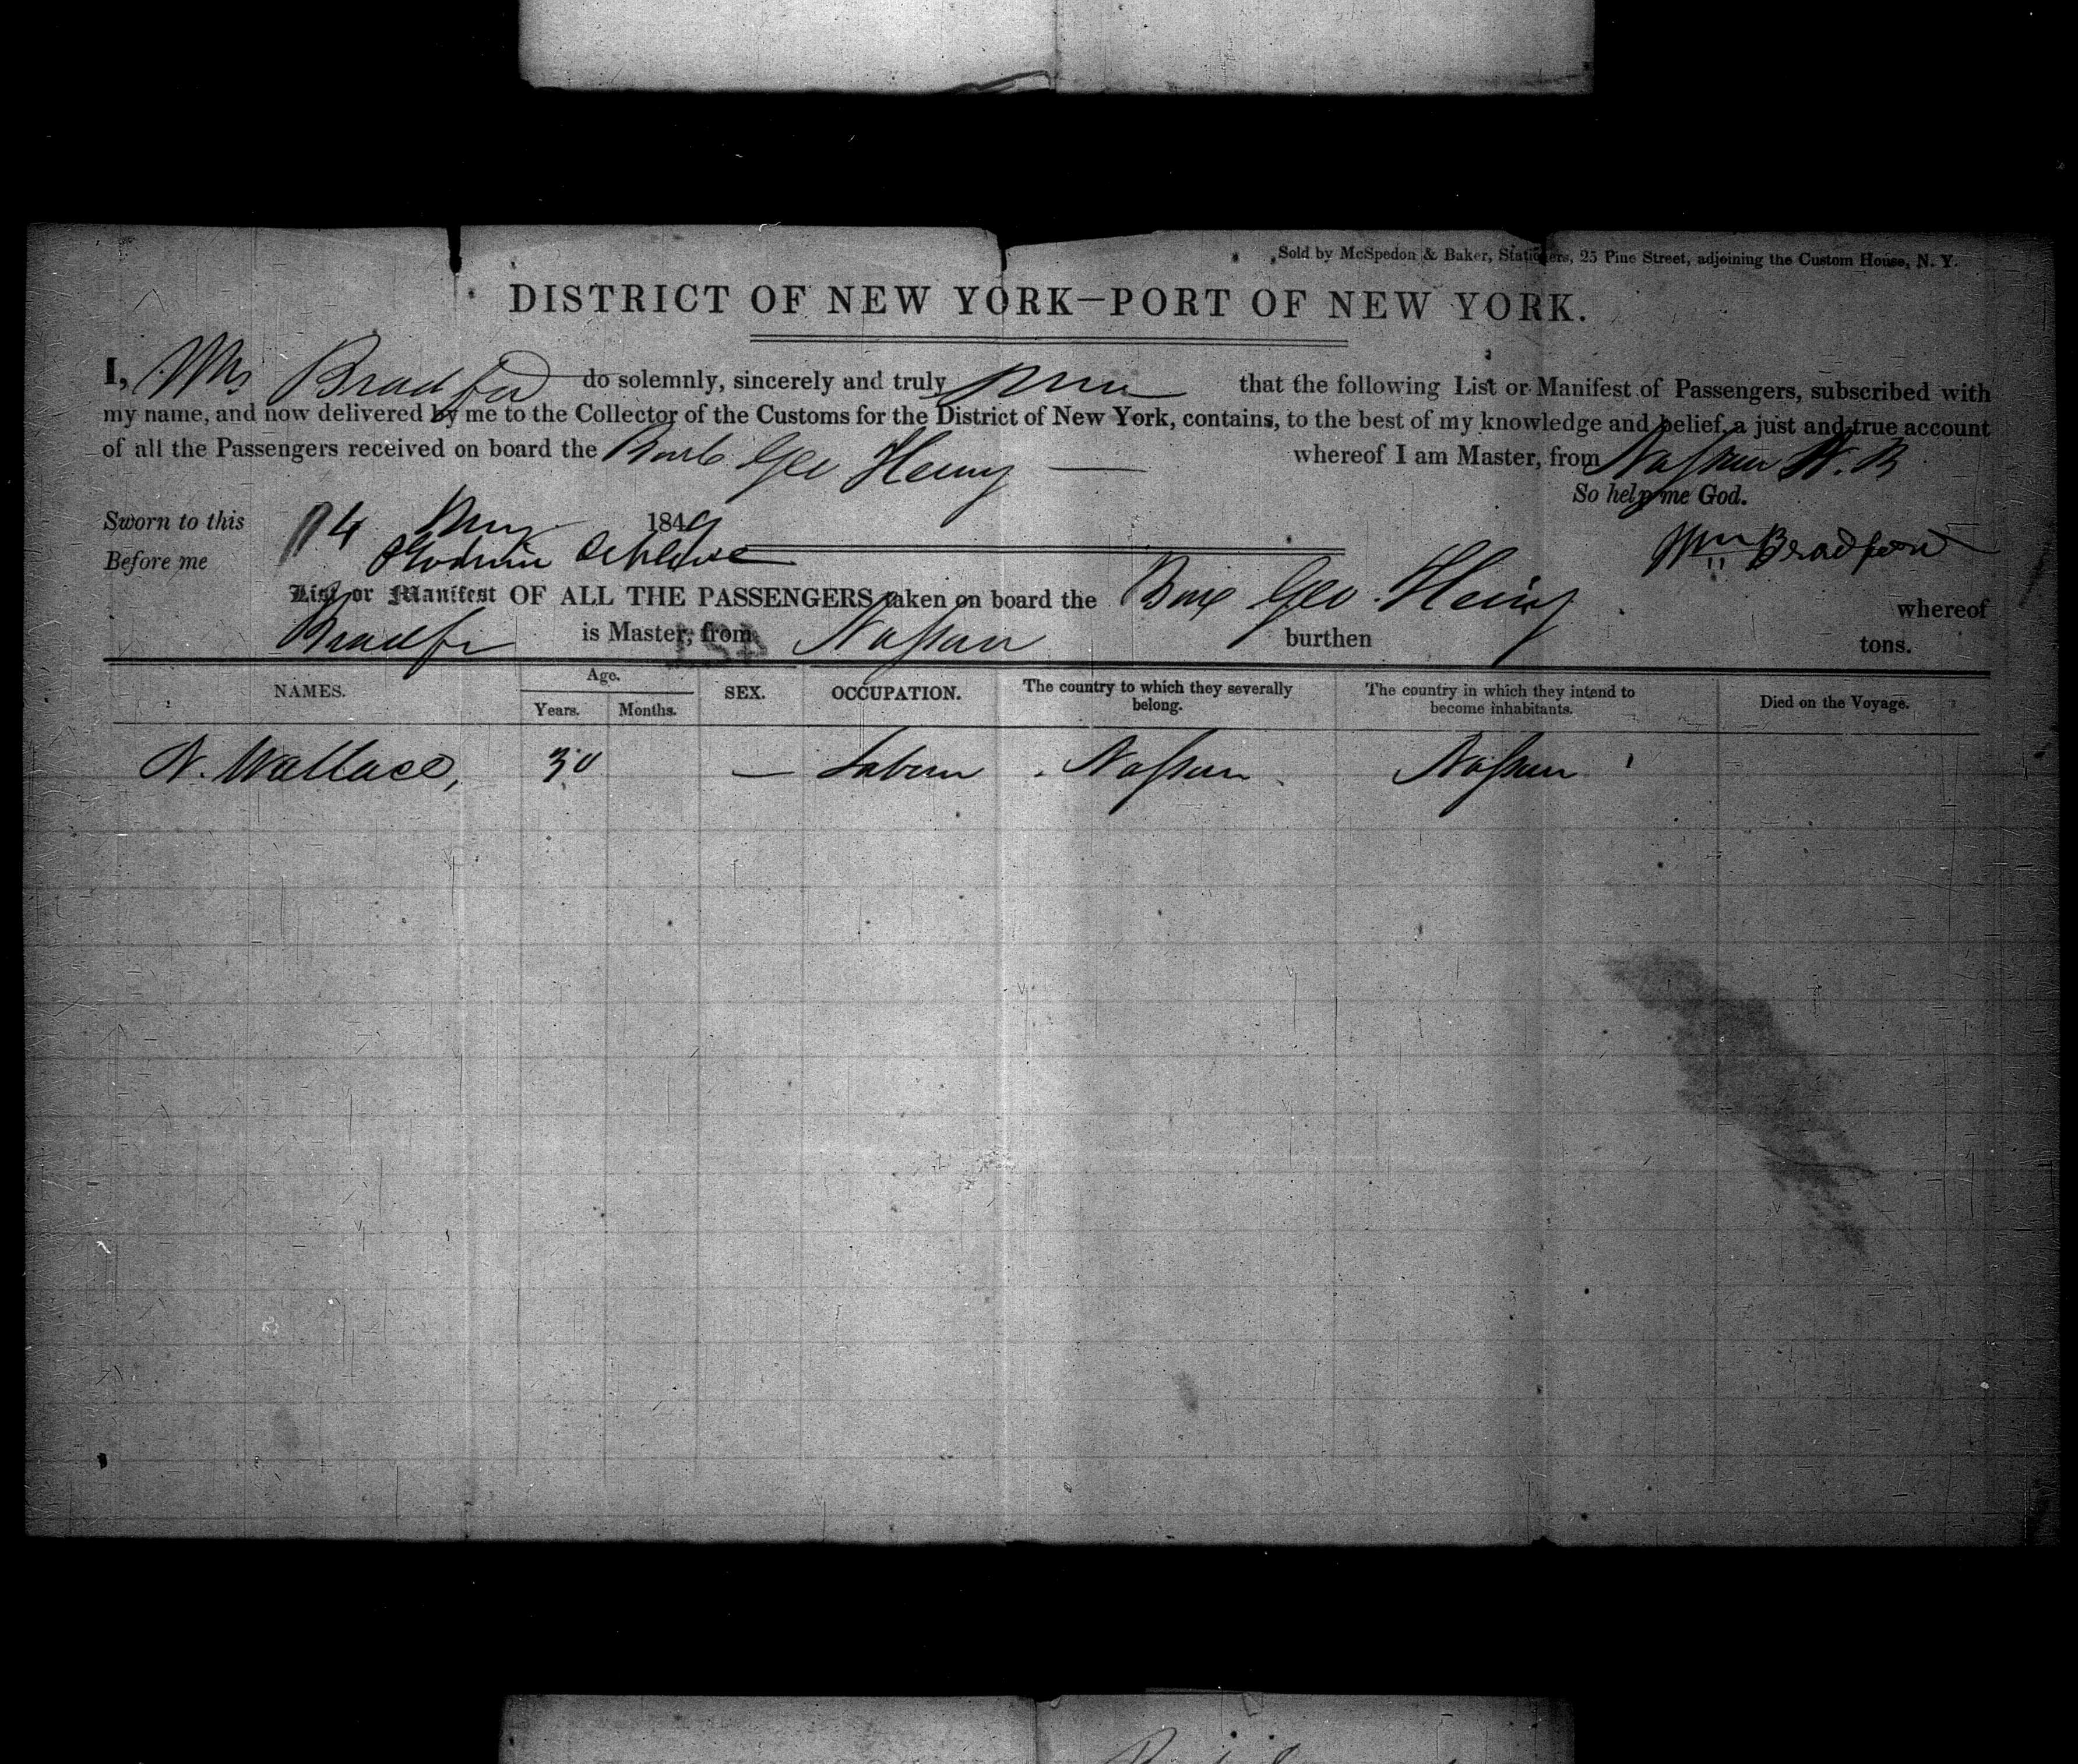 Sold by McSpedon & Baker, Stationers, 25 Pine Street, adjoining the Custom House, N. Y.
DISTRICT OF NEW YORK—PORT OF NEW YORK.
I, Wm Bradford do solemnly, sincerely and truly that the following List or Manifest of Passengers, subscribed with
my name, and now delivered by me to the Collector of the Customs for the District of New York, contains, to the best of my knowledge and belief, a just and true account
of all the Passengers received on board the Bark Geo Henry whereof I am Master, from Nassau
So help me God.
Sworn to this 14 May 1849
Before me Wm Bradford
List or Manifest OF ALL THE PASSENGERS taken on board the Geo. Henry whereof
Bradford is Master, from Nassau burthen tons.
NAMES. Age. Years. Months. SEX. OCCUPATION. The country to which they severally belong. The country in which they intend to become inhabitants. Died on the Voyage.
N. Wallace, 30 — Labour Nassau Nassau